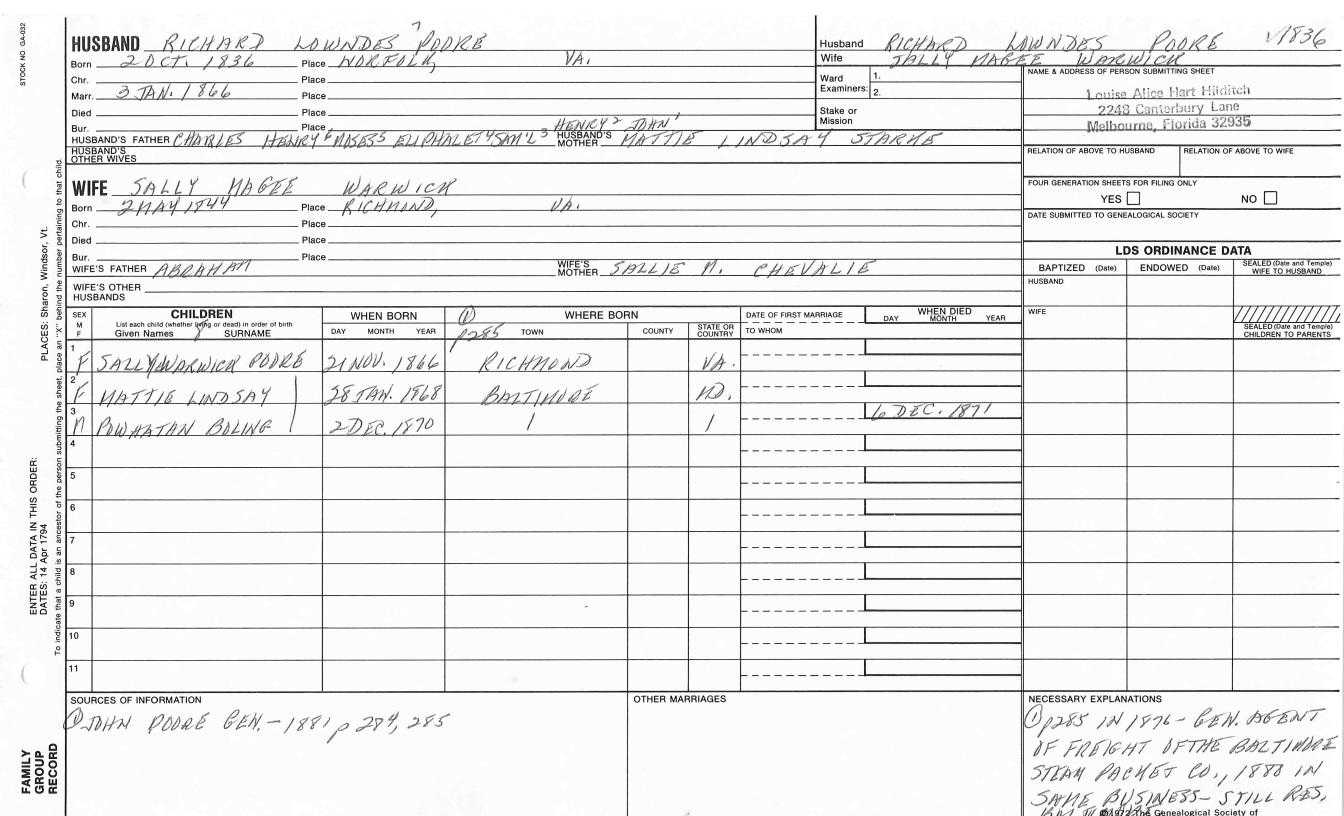 STOCK NO GA-032
HUSBAND RICHARD LOWNDES 7 POORE
Born 2 OCT. 1836 Place NORFOLK, VA.
Chr. Place
Marr. 3 JAN. 1866 Place
Died Place
Bur. Place
HUSBAND'S FATHER CHARLES HENRY 6 MOSES 5 ELIPHALET 4 SAM'L 3 HENRY 2 JOHN 1 HUSBAND'S MOTHER MATTIE LINDSAY STARKE
HUSBAND'S OTHER WIVES
WIFE SALLY MAGEE WARWICK
Born 2 MAY 1844 Place RICHMOND, VA.
Chr. Place
Died Place
Bur. Place
WIFE'S FATHER ABRAHAM WIFE'S MOTHER SALLIE M. CHEVALIE
WIFE'S OTHER HUSBANDS
Husband RICHARD LOWNDES POORE √1836
Wife SALLY MAGEE WARWICK
Ward Examiners: 1.
2.
Stake or Mission
NAME & ADDRESS OF PERSON SUBMITTING SHEET
Louise Alice Hart Hilditch
2248 Canterbury Lane
Melbourne, Florida 32935
RELATION OF ABOVE TO HUSBAND RELATION OF ABOVE TO WIFE
FOUR GENERATION SHEETS FOR FILING ONLY
YES NO
DATE SUBMITTED TO GENEALOGICAL SOCIETY
LDS ORDINANCE DATA
BAPTIZED (Date) ENDOWED (Date) SEALED (Date and Temple) WIFE TO HUSBAND
HUSBAND
WIFE
SEALED (Date and Temple) CHILDREN TO PARENTS
SEX M F
CHILDREN
List each child (whether living or dead) in order of birth
Given Names 8 SURNAME
WHEN BORN
DAY MONTH YEAR
① p285
WHERE BORN
TOWN COUNTY STATE OR COUNTRY
DATE OF FIRST MARRIAGE
TO WHOM
WHEN DIED
DAY MONTH YEAR
1 F SALLY WARWICK POORE 21 NOV. 1866 RICHMOND VA.
2 F MATTIE LINDSAY | 28 JAN. 1868 BALTIMORE MD.
3 M POWHATAN BOLING | 2 DEC. 1870 | | 6 DEC. 1871
4
5
6
7
8
9
10
11
SOURCES OF INFORMATION
① JOHN POORE GEN. - 1881 p 284, 285
OTHER MARRIAGES
NECESSARY EXPLANATIONS
① p285 IN 1876 - GEN. AGENT
OF FREIGHT OF THE BALTIMORE
STEAM PACKET CO., 1880 IN
SAME BUSINESS - STILL RES.
©1972 The Genealogical Society of
ENTER ALL DATA IN THIS ORDER:
DATES: 14 Apr 1794
PLACES: Sharon, Windsor, Vt.
To indicate that a child is an ancestor of the person submitting the sheet, place an "X" behind the number pertaining to that child.
FAMILY
GROUP
RECORD